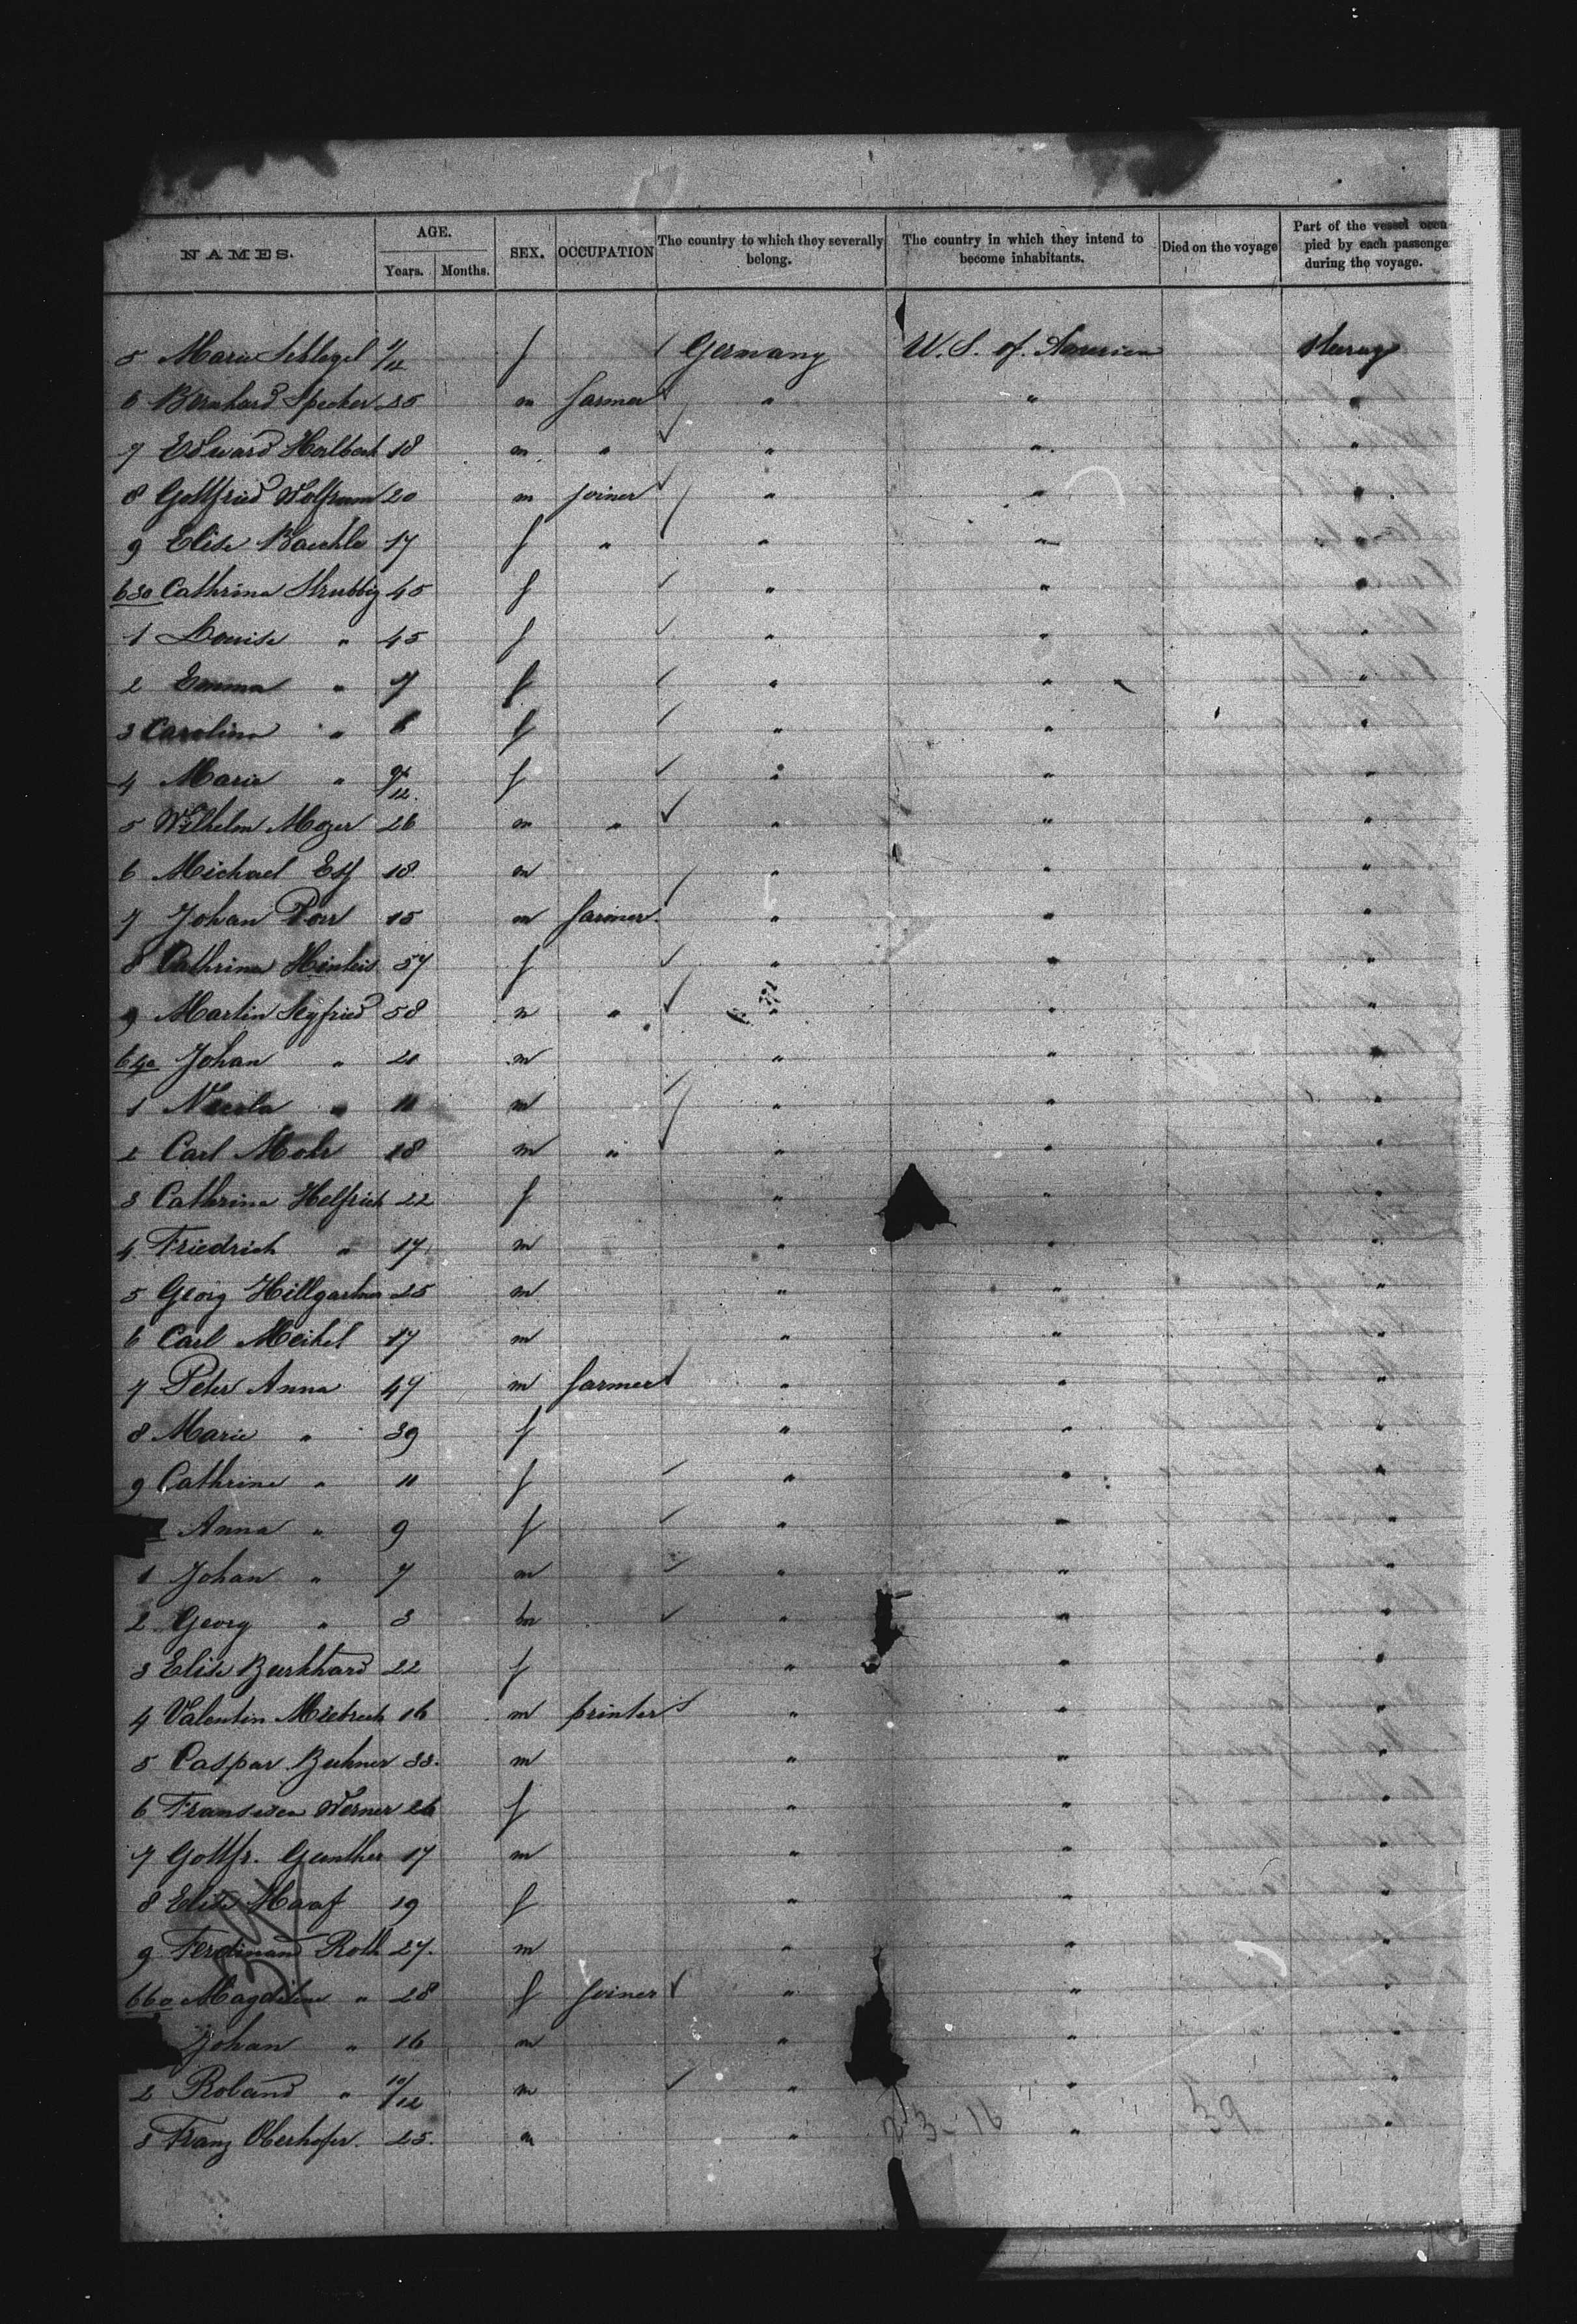 NAMES. AGE. Years. Months. SEX. OCCUPATION The country to which they severally belong. The country in which they intend to become inhabitants. Died on the voyage Part of the vessel occu- pied by each passenge during the voyage.
5 Marie Schlegel /12 f Germany U. S. of. America
6 Bernhard Specker 35 m farmer " " "
7 Edward 18 m " " " "
8 Gottfried Wolfram 20 m joiner " " "
9 Elise Baechle 17 f " " " "
630 Cathrina Strubbig 45 f " " "
1 Louise " 45 f " " "
2 Emma " 7 f " " "
3 Carolina " 6 f " " "
4 Marie " 9/12 f " " "
5 Wilhelm Mozer 26 m " " " "
6 Michael 18 m " " "
7 Johan 15 m farmer " " "
8 Cathrina 57 f " " "
9 Martin Seyfried 58 m " " " "
640 Johan " 20 m " " "
1 " 11 m " " "
2 Carl Mohr 18 m " " " "
3 Cathrina Helfrich 22 f " " "
4 Friedrich " 17 m " " "
5 Georg Hillgartner 25 m " " "
6 Carl Meikel 17 m " " "
7 Peter Anna 49 m farmer " " "
8 Marie " 39 f " " "
9 Cathrine " 11 f " " "
Anna " 9 f " " "
1 Johan " 7 m " " "
2 Georg " 3 m " " "
3 Elise Burkhard 22 f " " "
4 Valentin 16 m printer " " "
5 Caspar Buhner 33. m " " "
6 Werner 26 f " " "
7 Gottfr. Gunther 17 m " " "
8 Elise Haaf 19 f " " "
9 Ferdinand Roth 27. m " " "
660 Magdalene " 28 f joiner " " "
Johan " 16 m " " "
2 Roland " 10/12 m " " "
3 Franz Oberhofer. 25. m " " "
2-3-16 39